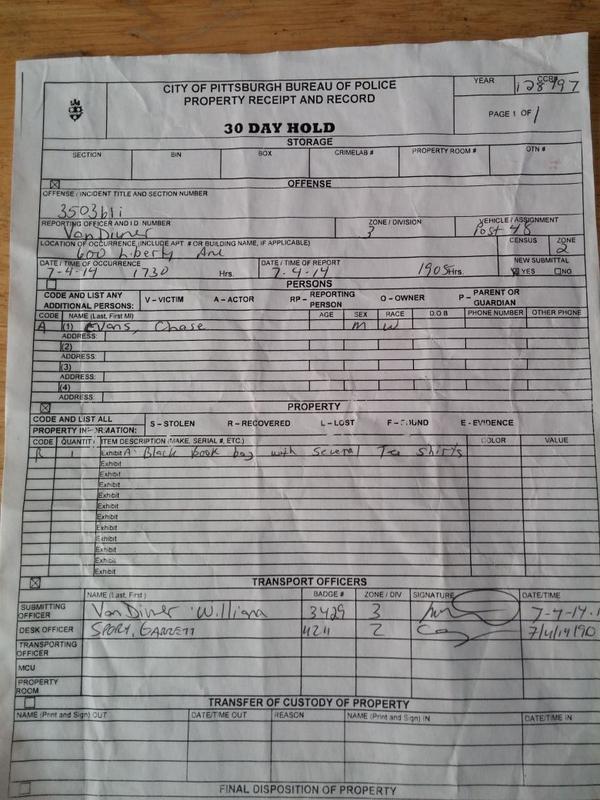 CITY OF PITTSBURGH BUREAU OF POLICE
PROPERTY RECEIPT AND RECORD
YEAR
CCR#
128797
30 DAY HOLD
PAGE 1 OF 1
STORAGE
SECTION BIN BOX CRIMELAB # PROPERTY ROOM # OTN #
OFFENSE
OFFENSE / INCIDENT TITLE AND SECTION NUMBER
3503b1i
REPORTING OFFICER AND I.D. NUMBER ZONE / DIVISION VEHICLE / ASSIGNMENT
VanDiver 3 Post 48
LOCATION OF OCCURRENCE (INCLUDE APT # OR BUILDING NAME, IF APPLICABLE) CENSUS ZONE
600 Liberty Ave 2
DATE / TIME OF OCCURRENCE DATE / TIME OF REPORT NEW SUBMITTAL
7-4-14 1730 Hrs. 7-4-14 1905 Hrs. YES NO
PERSONS
CODE AND LIST ANY ADDITIONAL PERSONS: V – VICTIM A – ACTOR RP – REPORTING PERSON O – OWNER P – PARENT OR GUARDIAN
CODE NAME (Last, First MI) AGE SEX RACE D.O.B PHONE NUMBER OTHER PHONE
A (1) Evans, Chase M W
ADDRESS:
(2)
ADDRESS:
(3)
ADDRESS:
(4)
ADDRESS:
PROPERTY
CODE AND LIST ALL PROPERTY INFORMATION: S – STOLEN R – RECOVERED L – LOST F – FOUND E - EVIDENCE
CODE QUANTITY ITEM DESCRIPTION (MAKE, SERIAL #, ETC.) COLOR VALUE
R 1 Exhibit A: Black book bag with several Tee shirts
Exhibit
Exhibit
Exhibit
Exhibit
Exhibit
Exhibit
Exhibit
Exhibit
Exhibit
Exhibit
TRANSPORT OFFICERS
NAME (Last, First) BADGE # ZONE / DIV SIGNATURE DATE/TIME
SUBMITTING OFFICER VanDiver William 3429 3 7-4-14
DESK OFFICER SPORY, GARRETT 4211 2 7/4/14
TRANSPORTING OFFICER
MCU
PROPERTY ROOM
TRANSFER OF CUSTODY OF PROPERTY
NAME (Print and Sign) OUT DATE/TIME OUT REASON NAME (Print and Sign) IN DATE/TIME IN
FINAL DISPOSITION OF PROPERTY